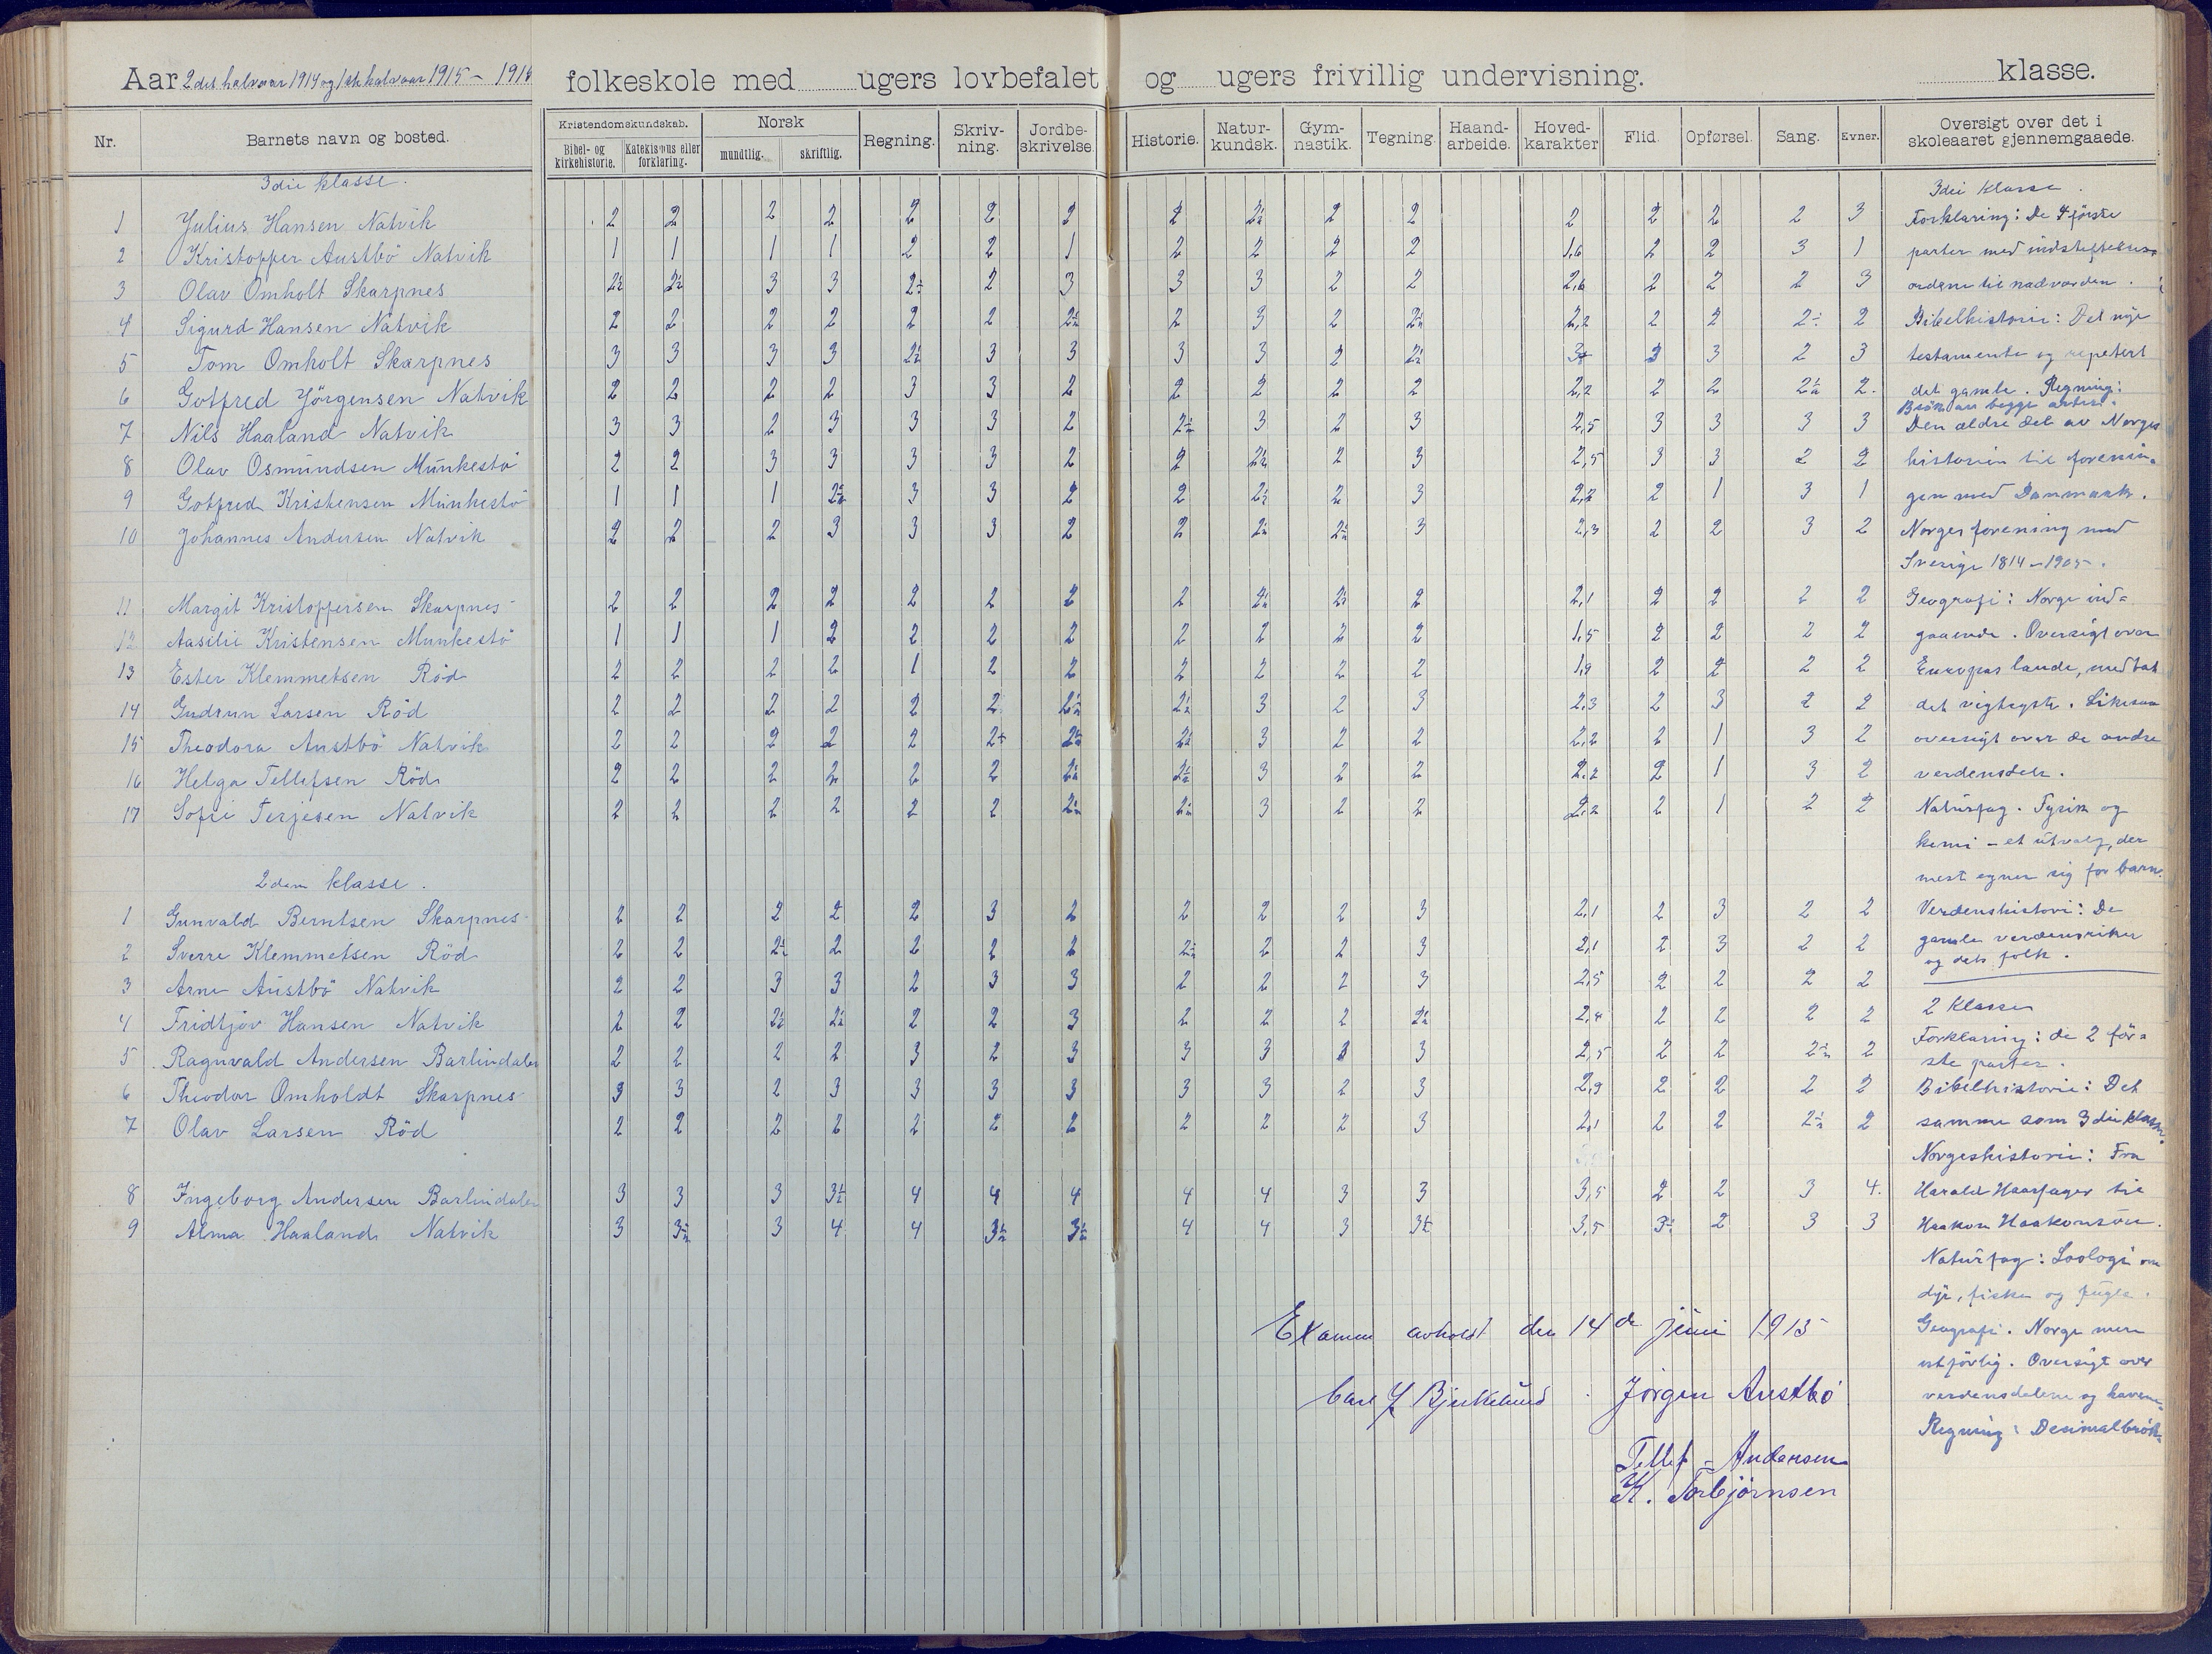 Aar 2det halvaar 1914 og 1ste halvaar 1915 – 1916 folkeskole med ugers lovbefalet og ugers frivillig undervisning. klasse.
Nr. Barnets navn og bosted. Kristendomskundskab. Bibel- og kirkehistorie. Katekismus eller forklaring. Norsk mundtlig. skriftlig. Regning. Skriv-ning. Jordbe-skrivelse. Historie. Natur-kundsk. Gym-nastik. Tegning. Haand-arbeide. Hoved-karakter Flid. Opførsel. Sang. Evner. Oversigt over det i skoleaaret gjennemgaaede.
3die klasse. 3die klasse.
1 Julius Hansen Natvik 2 2 2 2 2 2 2 2 2½ 2 2 2 2 2 2 3 Forklaring: De 4 første
2 Kristoffer Austbö Natvik 1 1 1 1 2 2 1 2 2 2 2 1,6 2 2 3 1 parter med indstiftelses=
3 Olav Omholt Skarpnes 2½ 2½ 3 3 2÷ 2 3 3 3 2 2 2,6 2 2 2 3 ordene til nadverden.
4 Sigurd Hansen Natvik 2 2 2 2 2 2 2½ 2 3 2 2½ 2,2 2 2 2÷ 2 Bibelhistorie: Det nye
5 Tom Omholt Skarpnes 3 3 3 3 2½ 3 3 3 3 2 2½ 3 3 2 3 testamente og repetert
6 Gotfred Jörgensen Natvik 2 2 2 2 3 3 2 2 2 2 2 2,2 2 2 2½ 2. det gamle. Regning:
Brök av begge arter.
7 Nils Haaland Natvik 3 3 2 3 3 3 2 2½ 3 2 3 2,5 3 3 3 3 Den ældre del av Norges
8 Olav Osmundsen Munkestö 2 2 3 3 3 3 2 2 2½ 2 3 2,5 3 3 2 2 historien til forenin=
9 Gotfred Kristensen Munkestö 1 1 1 2½ 3 3 2 2 2½ 2 3 2,2 2 1 3 1 gen med Danmark.
10 Johannes Andersen Natvik 2 2 2 3 3 3 2 2 2½ 2½ 3 2,3 2 2 3 2 Norges forening med
Sverige 1814–1905.
11 Margit Kristoffersen Skarpnes 2 2 2 2 2 2 2 2 2½ 2½ 2 2,1 2 2 2 2 Geografi: Norge ind=
12 Aasilie Kristensen Munkestö 1 1 1 2 2 2 2 2 2 2 2 1,5 2 2 2 2 gaaende. Oversigt over
13 Ester Klemmetsen Röd 2 2 2 2 1 2 2 2 2 2 2 1,9 2 2 2 2 Europas lande, medtat
14 Gudrun Larsen Röd 2 2 2 2 2 2 2½ 2½ 3 2 3 2,3 2 3 2 2 det vigtigste. Likesaa
15 Theodora Austbö Natvik 2 2 2 2 2 2÷ 2½ 2½ 3 2 2 2,2 2 1 3 2 oversigt over de andre
16 Helga Tellefsen Röd 2 2 2 2 2 2 2½ 2½ 3 2 2 2,2 2 1 3 2 verdensdele.
17 Sofie Terjesen Natvik 2 2 2 2 2 2 2½ 2½ 3 2 2 2,2 2 1 2 2 Naturfag. Fysik og
kemi – et utvalg, der
2den klasse. mest egner sig for barn.
1 Gunvald Berntsen Skarpnes 2 2 2 2 2 3 2 2 2 2 3 2,1 2 3 2 2 Verdenshistorie: De
2 Sverre Klemmetsen Röd 2 2 2½ 2 2 2 2 2½ 2 2 3 2,1 2 3 2 2 gamle verdensriker
og dets folk.
3 Arne Austbö Natvik 2 2 3 3 2 3 3 2 2 2 3 2,5 2 2 2 2
4 Fridtjov Hansen Natvik 2 2 2½ 2½ 2 2 3 2 2 2 2½ 2,4 2 2 2 2 2 klasse
5 Ragnvald Andersen Barlindalen 2 2 2 2 3 2 3 3 3 3 3 2,5 2 2 2½ 2 Forklaring: de 2 för=
ste parter.
6 Theodor Omholdt Skarpnes 3 3 2 3 3 3 3 3 3 2 3 2,9 2 2 2 2 Bibelhistorie: Det
7 Olav Larsen Röd 2 2 2 2 2 2 2 2 2 2 3 2,1 2 2 2½ 2 samme som 3die klasse.
Norgeshistorie: Fra
8 Ingeborg Andersen Barlindalen 3 3 3 3½ 4 4 4 4 4 3 3 3,5 2 2 3 4. Harald Haarfager til
9 Alma Haaland Natvik 3 3½ 3 4 4 3½ 3½ 4 4 3 3½ 3,5 3÷ 2 3 3 Haakon Haakonsön.
Naturfag: Zoologi om
dyr, fiske og fugle.
Examen avholdt den 14de juni 1915 Geografi. Norge mere
utförlig. Oversigt over
Carl J Bjerkelund Jörgen Austbö verdensdelene og havene.
Regning: Desimalbrök.
Tellef Andersen
K. Torbjörnsen